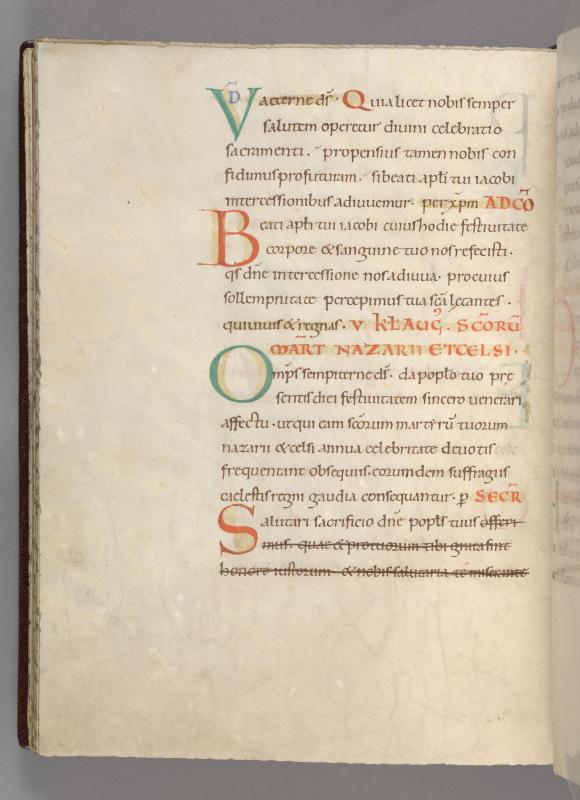 VD aeterne ds. Quia licet nobis semper
salutem operetur diuini celebratio
sacramenti. propensius tamen nobis con
fidimus profuturam. si beati apli tui iacobi
intercessionibus adiuuemur. per xpm AD CO
Beati apli tui iacobi cuius hodie festiuitate
corpore & sanguine tuo nos refecisti.
qs dne intercessione nos adiuua. pro cuius
sollempnitate percepimus tua sca lętantes.
qui uiuis & regnas. V KL AUG. SCORU
MART NAZARII ET CELSI.
Omps sempiterne ds. da poplo tuo pre
sentis diei festiuitatem sincero uenerari
affectu. ut qui eam scorum martyru tuorum
nazarii & celsi annua celebritate deuotis
frequentant obsequiis. eorumdem suffragiis
caelestis regni gaudia consequantur. p SECR
Salutari sacrificio dne popls tuus offeri
mus. quae & pro tuorum tibi grata sint
honore iustorum. & nobis salutaria te miserante